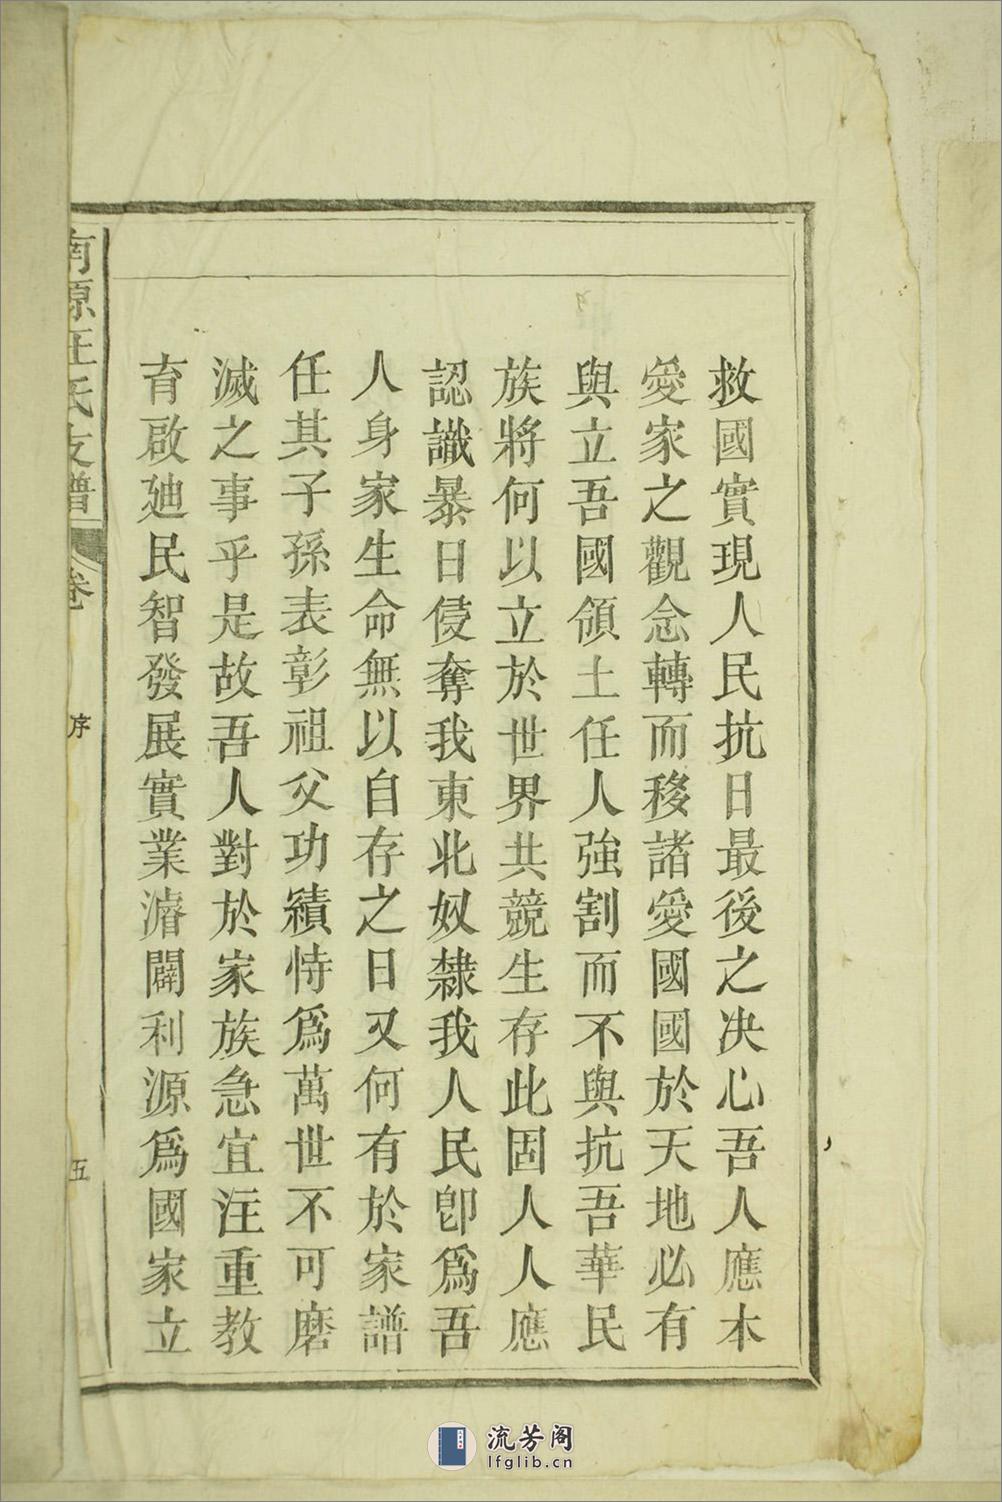 救國實現人民抗日最後之决心吾人應本
愛家之觀念轉而移諸愛國國於天地必有
與立吾國領土任人強割而不與抗吾華民
族將何以立於世界共競生存此固人人應
認識暴日侵奪我東北奴隸我人民卽爲吾
人身家生命無以自存之日又何有於家譜
任其子孫表彰祖父功績恃爲萬世不可磨
滅之事乎是故吾人對於家族急宜注重教
育啟廸民智發展實業濬闢利源爲國家立
南源汪氏支譜 卷 序 五
流芳阁
lfglib.cn